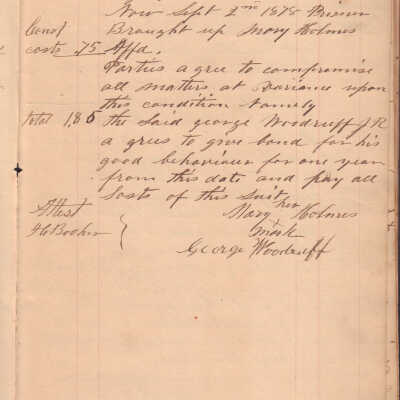 Now Sept 2nd 1878
Const Brought up Mary Holmes
costs .75 Affd.
Parties agree to compromise
all matters at variance upon
this condition Namely
total 1.85 the said george Woodruff J.R
agrees to give bond for his
good behaviour for one year
from this date and pay all
Costs of this Suit
her
Attest Mary x Holmes
Booker mark
George Woodruff